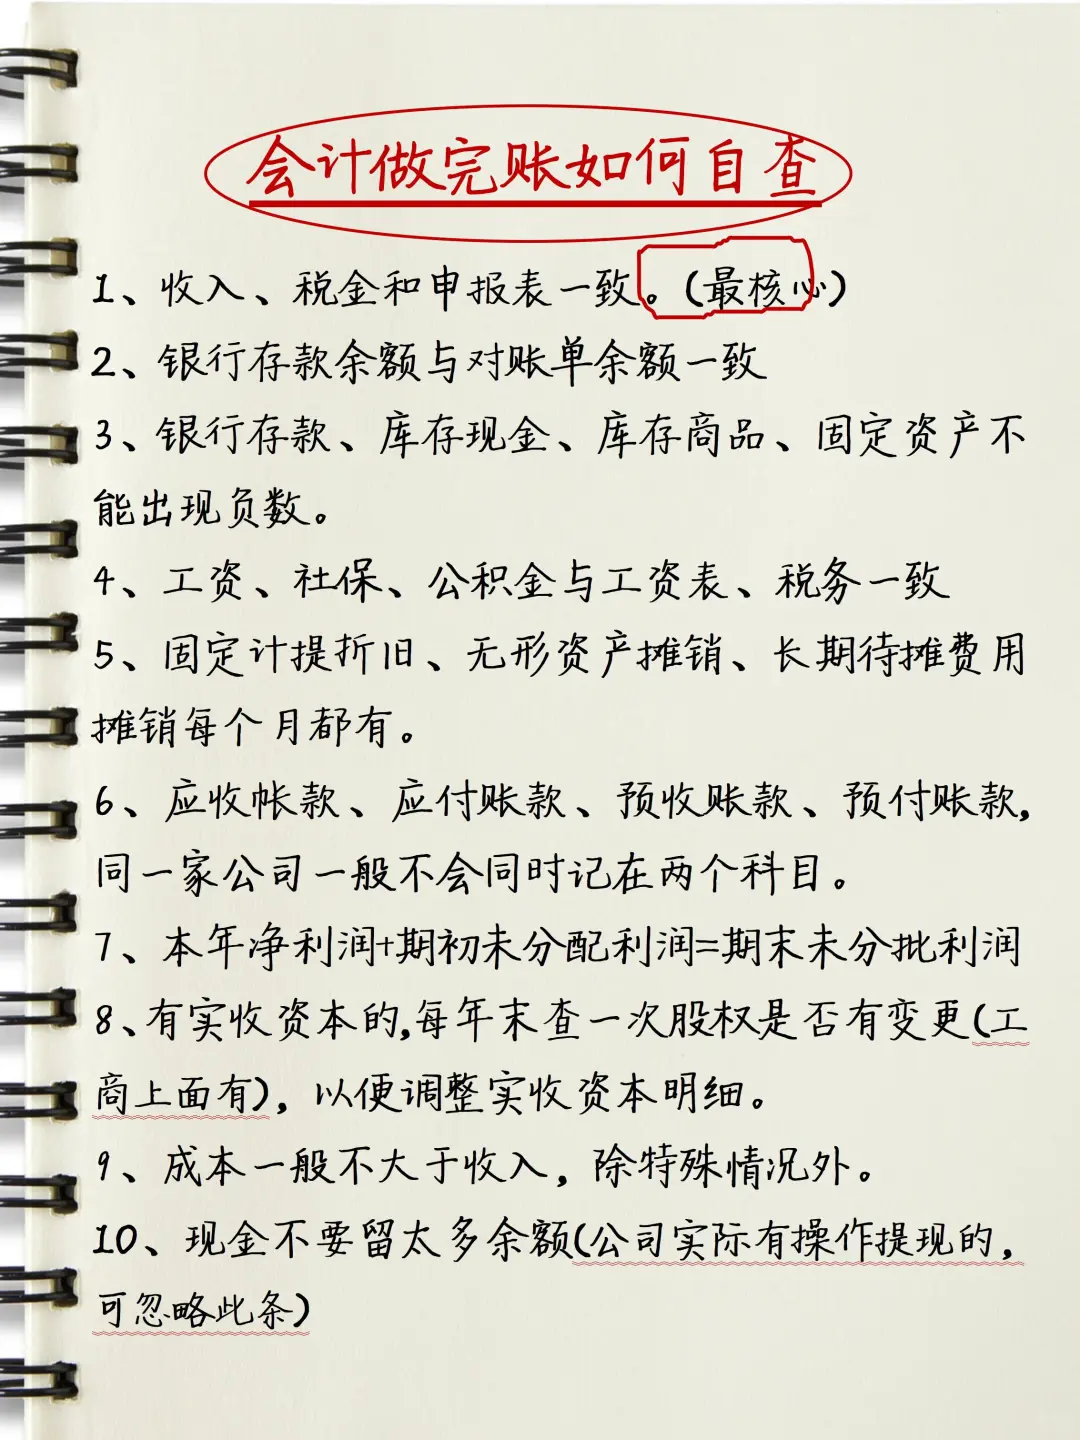 会计做完账如何自查
1、收入、税金和申报表一致。(最核心)
2、银行存款余额与对账单余额一致
3、银行存款、库存现金、库存商品、固定资产不
能出现负数。
4、工资、社保、公积金与工资表、税务一致
5、固定计提折旧、无形资产摊销、长期待摊费用
摊销每个月都有。
6、应收帐款、应付账款、预收账款、预付账款,
同一家公司一般不会同时记在两个科目。
7、本年净利润+期初未分配利润=期末未分批利润
8、有实收资本的,每年末查一次股权是否有变更(工
商上面有),以便调整实收资本明细。
9、成本一般不大于收入,除特殊情况外。
10、现金不要留太多余额(公司实际有操作提现的,
可忽略此条)